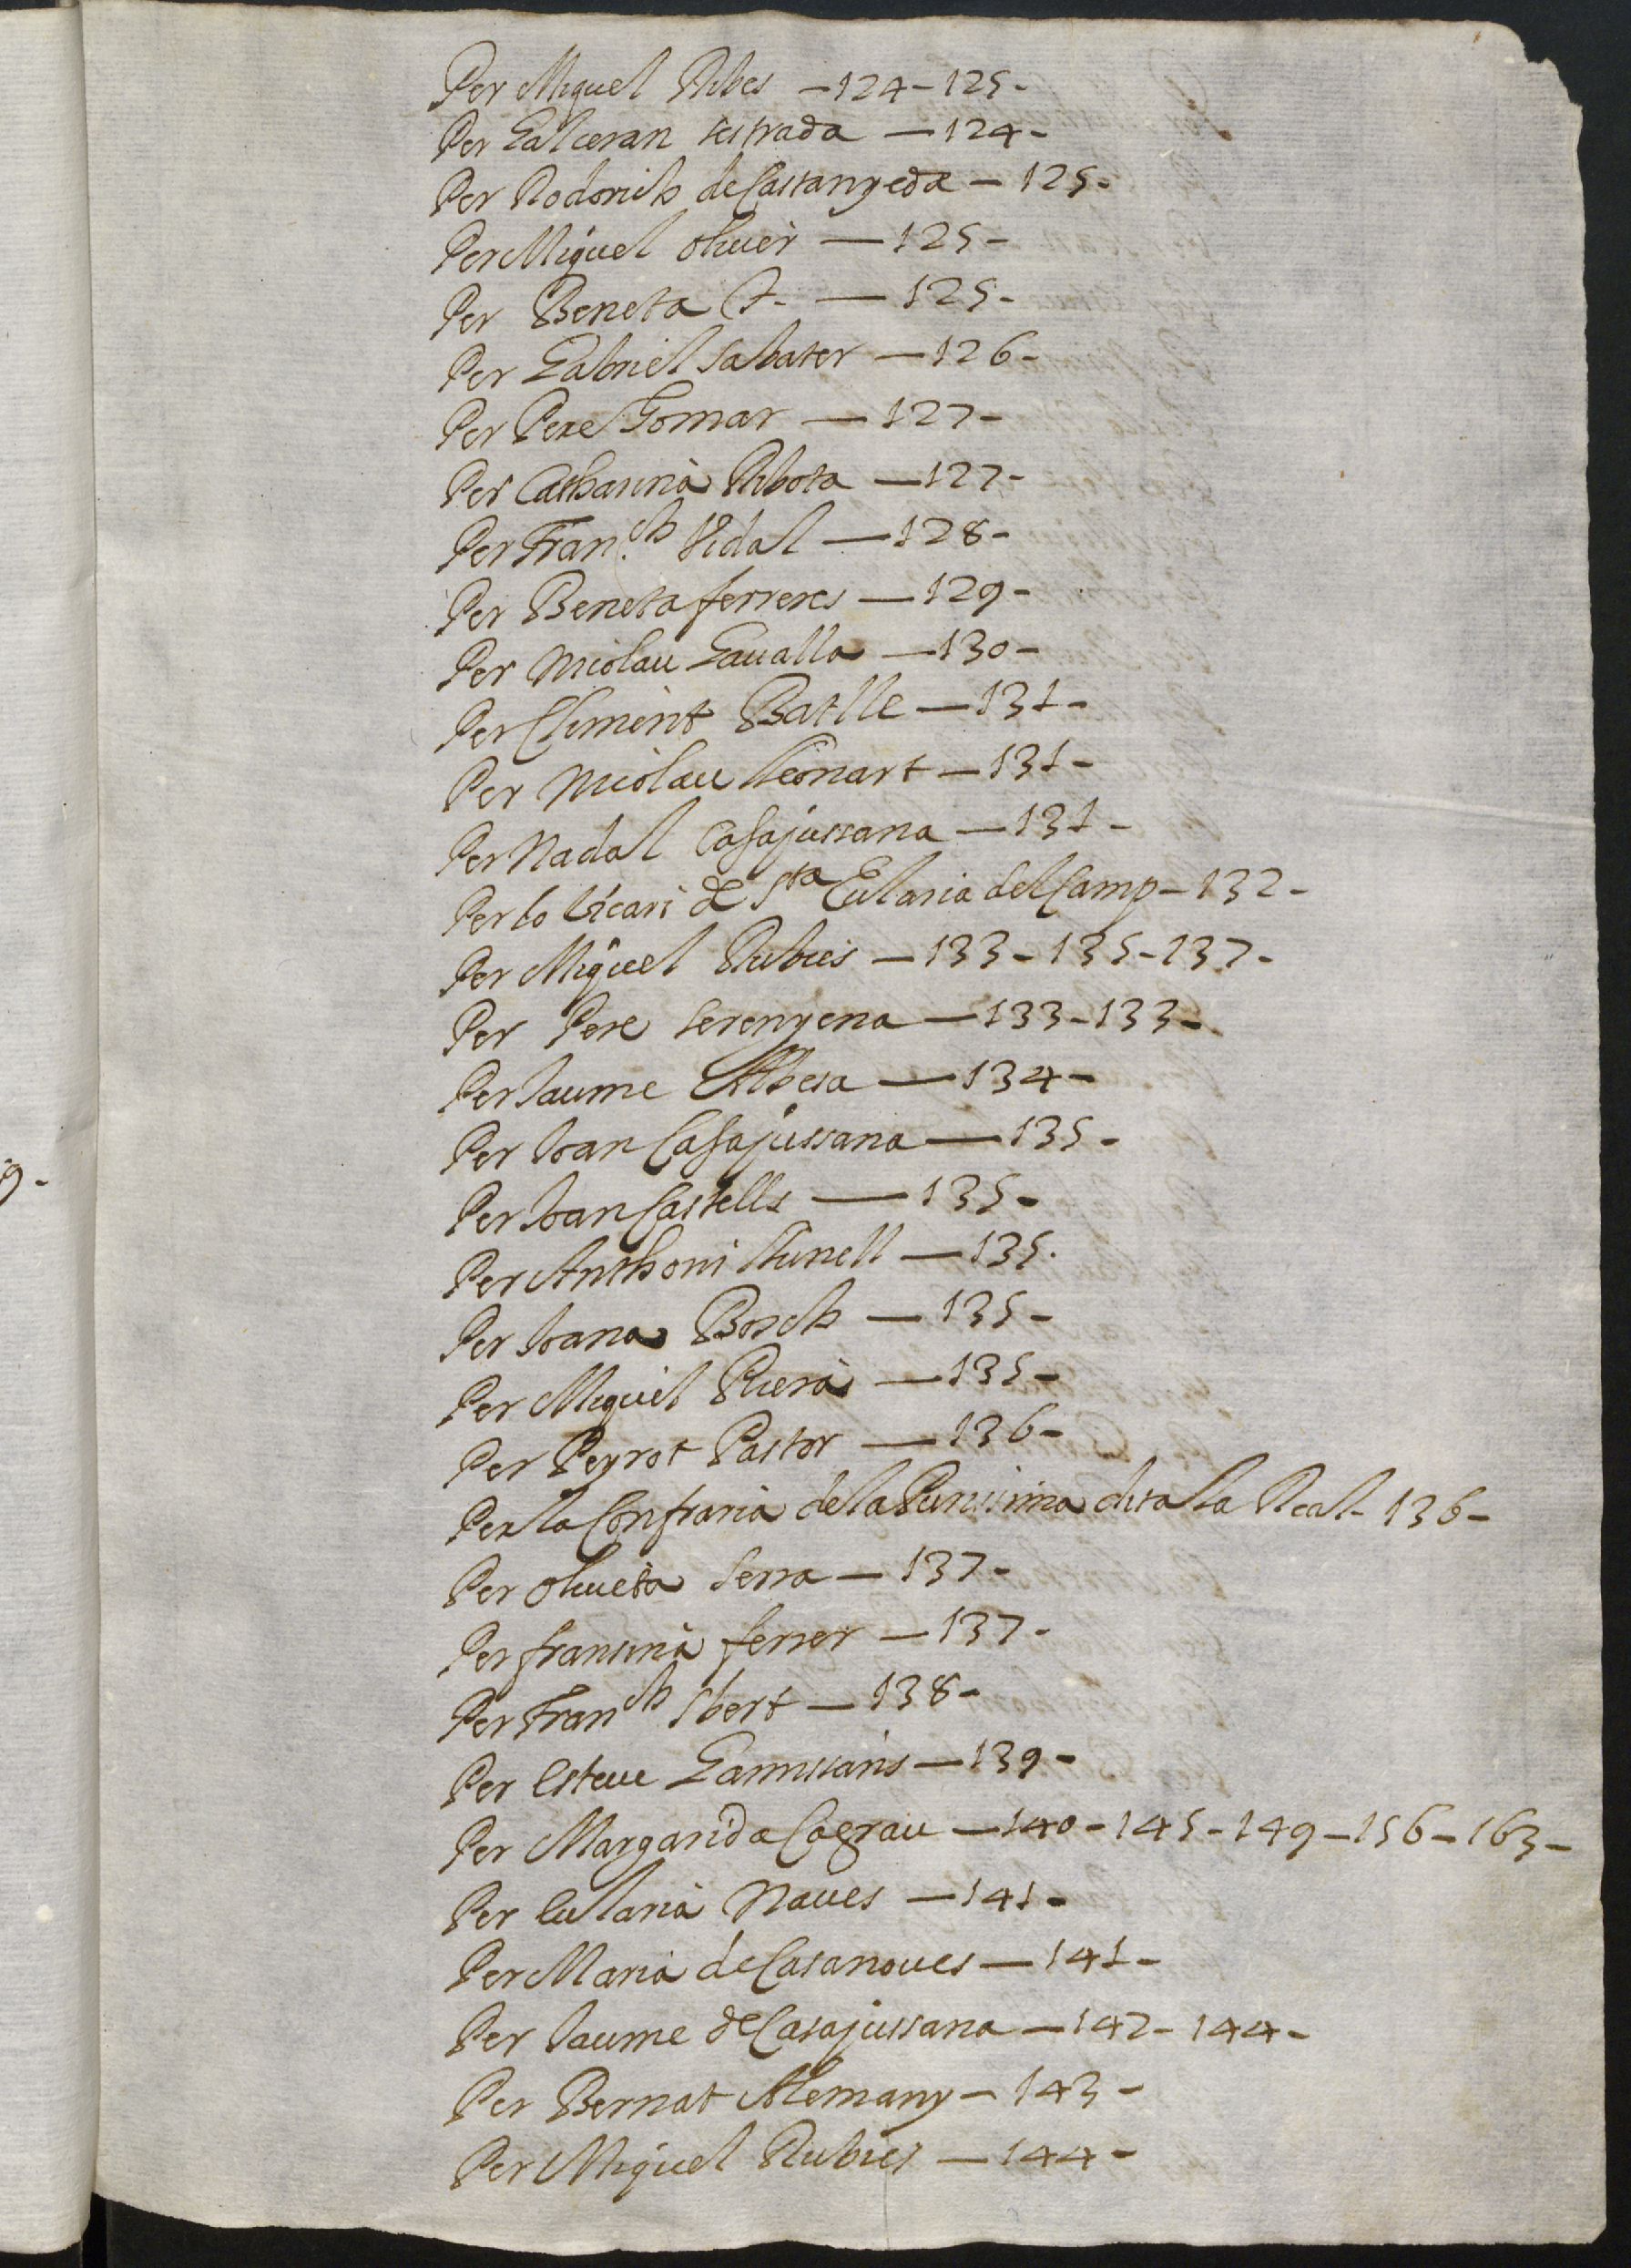 Per Miquel Ribes - 124 - 125 -
Per Galceran sestrada - 124 -
Per Rodorich de Castanyeda - 125 -
Per Miquel oliver - 125 -
Per Beneta - 125 -
Per Gabriel Sabater - 126 -
Per Pere Gomar - 127 -
Per Catharina Ribota - 127 -
Per Fran.ch Vidal - 128 -
Per Beneta ferreres - 129 -
Per Nicolau Gavalla - 130 -
Per Climent Batlle - 131 -
Per Nicolau Leonart - 131 -
Per Nadal Casajussana - 131 -
Per lo Vicari de Sta Eularia del Camp - 132 -
Per Miquel Rubies - 133 - 135 - 137 -
Per Pere Serenyena - 133 - 133 -
Per Jaume Albesa - 134 -
Per Joan Casajussana - 135 -
Per Joan Castells - 135 -
Per Anthoni Lunell - 135 -
Per Joana Bosch - 135 -
Per Miquel Riera - 135 -
Per Peyrot Pastor - 136 -
Per la Confraria de la Purissima dita la Real - 136 -
Per oliveta Serra - 137 -
Per fransina ferrer - 137 -
Per Franch Ibert - 138 -
Per Esteve Gamissans - 139 -
Per Margarida Cagrau - 140 - 145 - 149 - 156 - 163 -
Per Eularia Naves - 141 -
Per Maria de Casanoves - 141 -
Per Jaume de Casajussana - 142 - 144 -
Per Bernat Alemany - 143 -
Per Miquel Rubies - 144 -